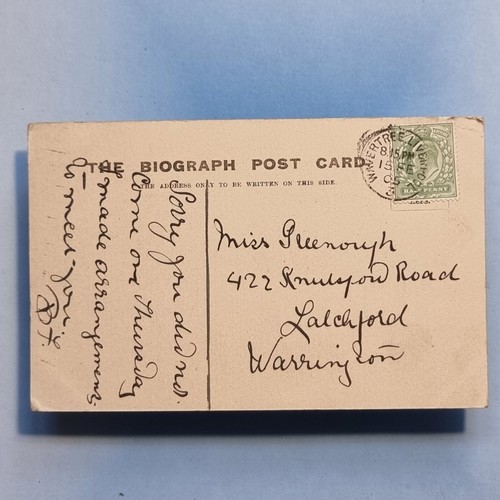 THE BIOGRAPH POST CARD.
THE ADDRESS ONLY TO BE WRITTEN ON THIS SIDE.
WAVERTREE LIVERPOOL
8.15 PM
15
05
HALFPENNY
Sorry you did not
Come on Thursday
I made arrangements
to meet you.
Miss Greenough
422 Knutsford Road
Latchford
Warrington